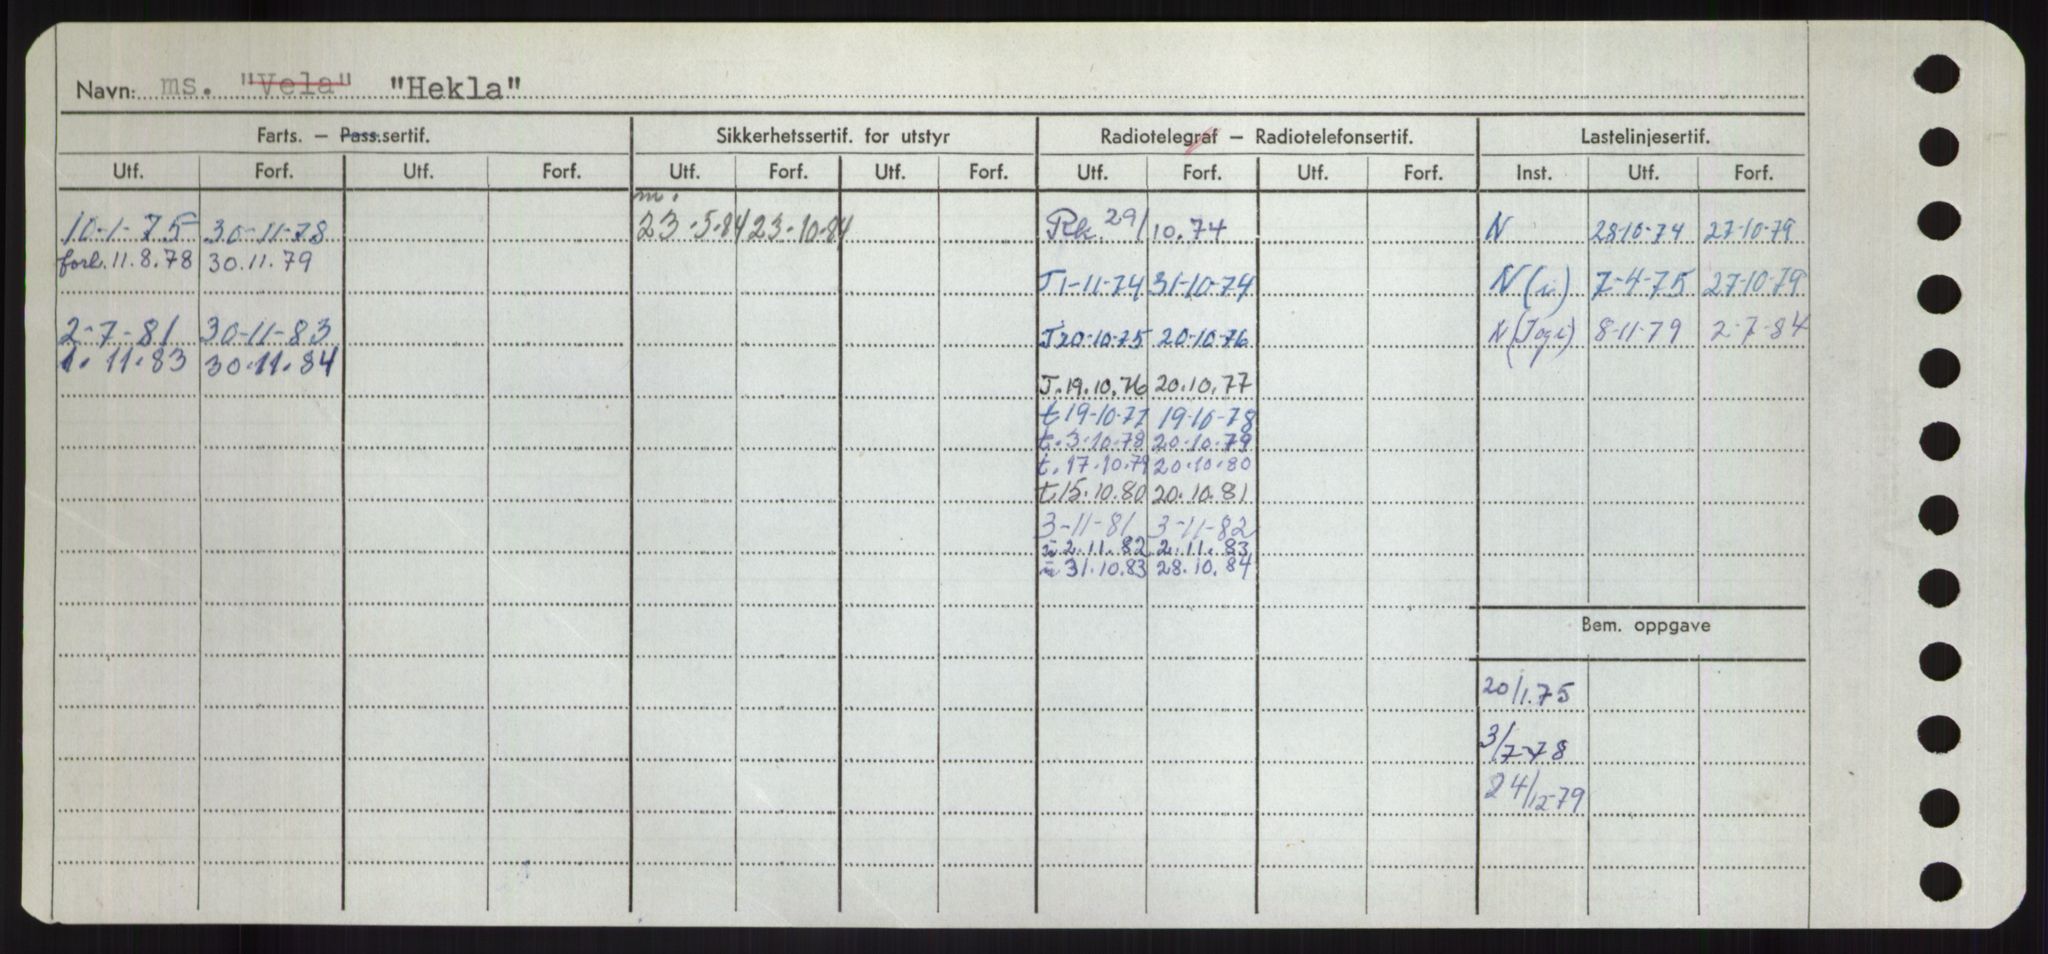 Navn: ms. "Vela" "Hekla"
Farts. — Pass.sertif. Sikkerhetssertif. for utstyr Radiotelegraf — Radiotelefonsertif. Lastelinjesertif.
Utf. Forf. Utf. Forf. Utf. Forf. Utf. Forf. Utf. Forf. Utf. Forf. Inst. Utf. Forf.
m.
10-1-75 30-11-78 23.5.84 23.10.84 Rk. 29/10.74 N 28-10-74 27-10-79
forl. 11.8.78 30.11.79
T 1-11-74 31-10-74 N (i) 7-4-75 27-10-79
2-7-81 30-11-83 T 20-10-75 20-10-76 N 8-11-79 2-7-84
1.11.83 30.11.84
T. 19.10.76 20.10.77
t 19-10-77 19-10-78
t. 3.10.78 20.10.79
t. 17.10.79 20.10.80
t 15.10.80 20.10.81
3-11-81 3-11-82
2.11.82 2.11.83
31.10.83 28.10.84
Bem. oppgave
20/1.75
3/7-78
24/12-79